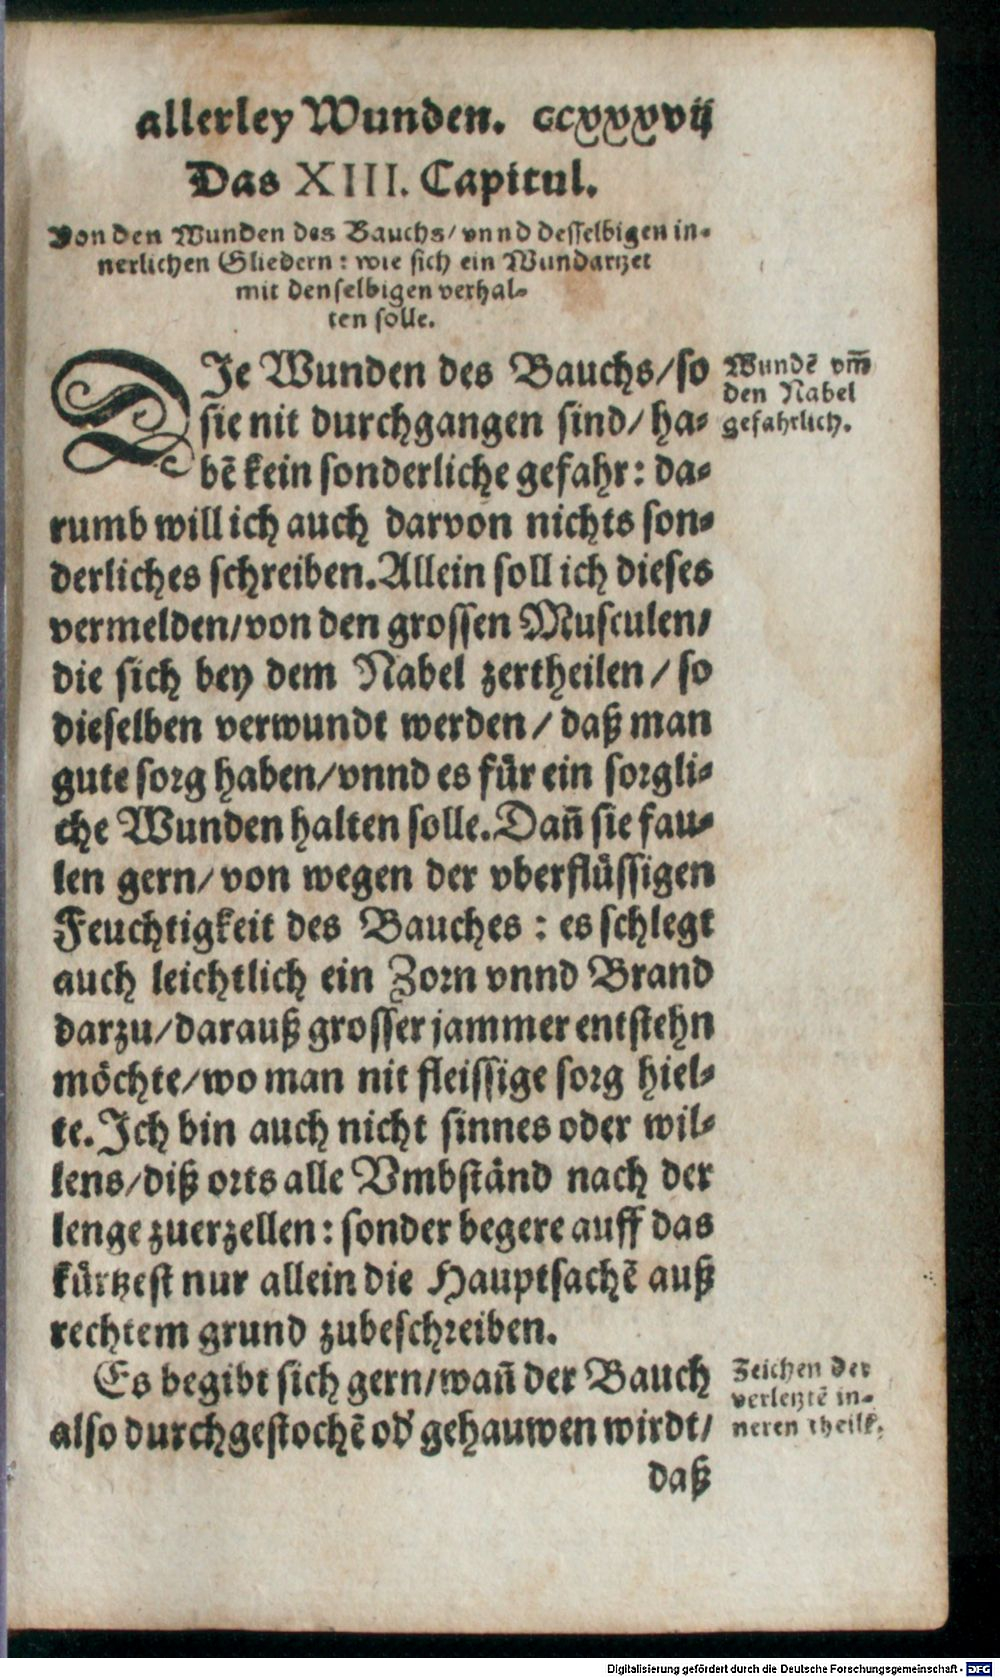 allerley Wunden. ccxxxvij
Das XIII. Capitul.
Von den Wunden des Bauchs/ vnnd desselbigen in⸗
nerlichen Gliedern: wie sich ein Wundartzet
mit denselbigen verhal⸗
ten solle.
DIe Wunden des Bauchs/ so
sie nit durchgangen sind/ ha⸗
bẽ kein sonderliche gefahr: da⸗
rumb will ich auch darvon nichts son⸗
derliches schreiben. Allein soll ich dieses
vermelden/ von den grossen Musculen/
die sich bey dem Nabel zertheilen/ so
dieselben verwundt werden/ daß man
gute sorg haben/ vnnd es für ein sorgli⸗
che Wunden halten solle. Dañ sie fau⸗
len gern/ von wegen der vberflüssigen
Feuchtigkeit des Bauches: es schlegt
auch leichtlich ein Zorn vnnd Brand
darzu/ darauß grosser jammer entstehn
möchte/ wo man nit fleissige sorg hiel⸗
te. Ich bin auch nicht sinnes oder wil⸗
lens/ diß orts alle Vmbständ nach der
lenge zuerzellen: sonder begere auff das
kürtzest nur allein die Hauptsachẽ auß
rechtem grund zubeschreiben.
Es begibt sich gern/ wañ der Bauch
also durchgestochẽ od' gehauwen wirdt/
daß
Wundẽ vm̃
den Nabel
gefahrlich.
Zeichen der
verletztẽ in⸗
neren theilẽ.
Digitalisierung gefördert durch die Deutsche Forschungsgemeinschaft - DFG